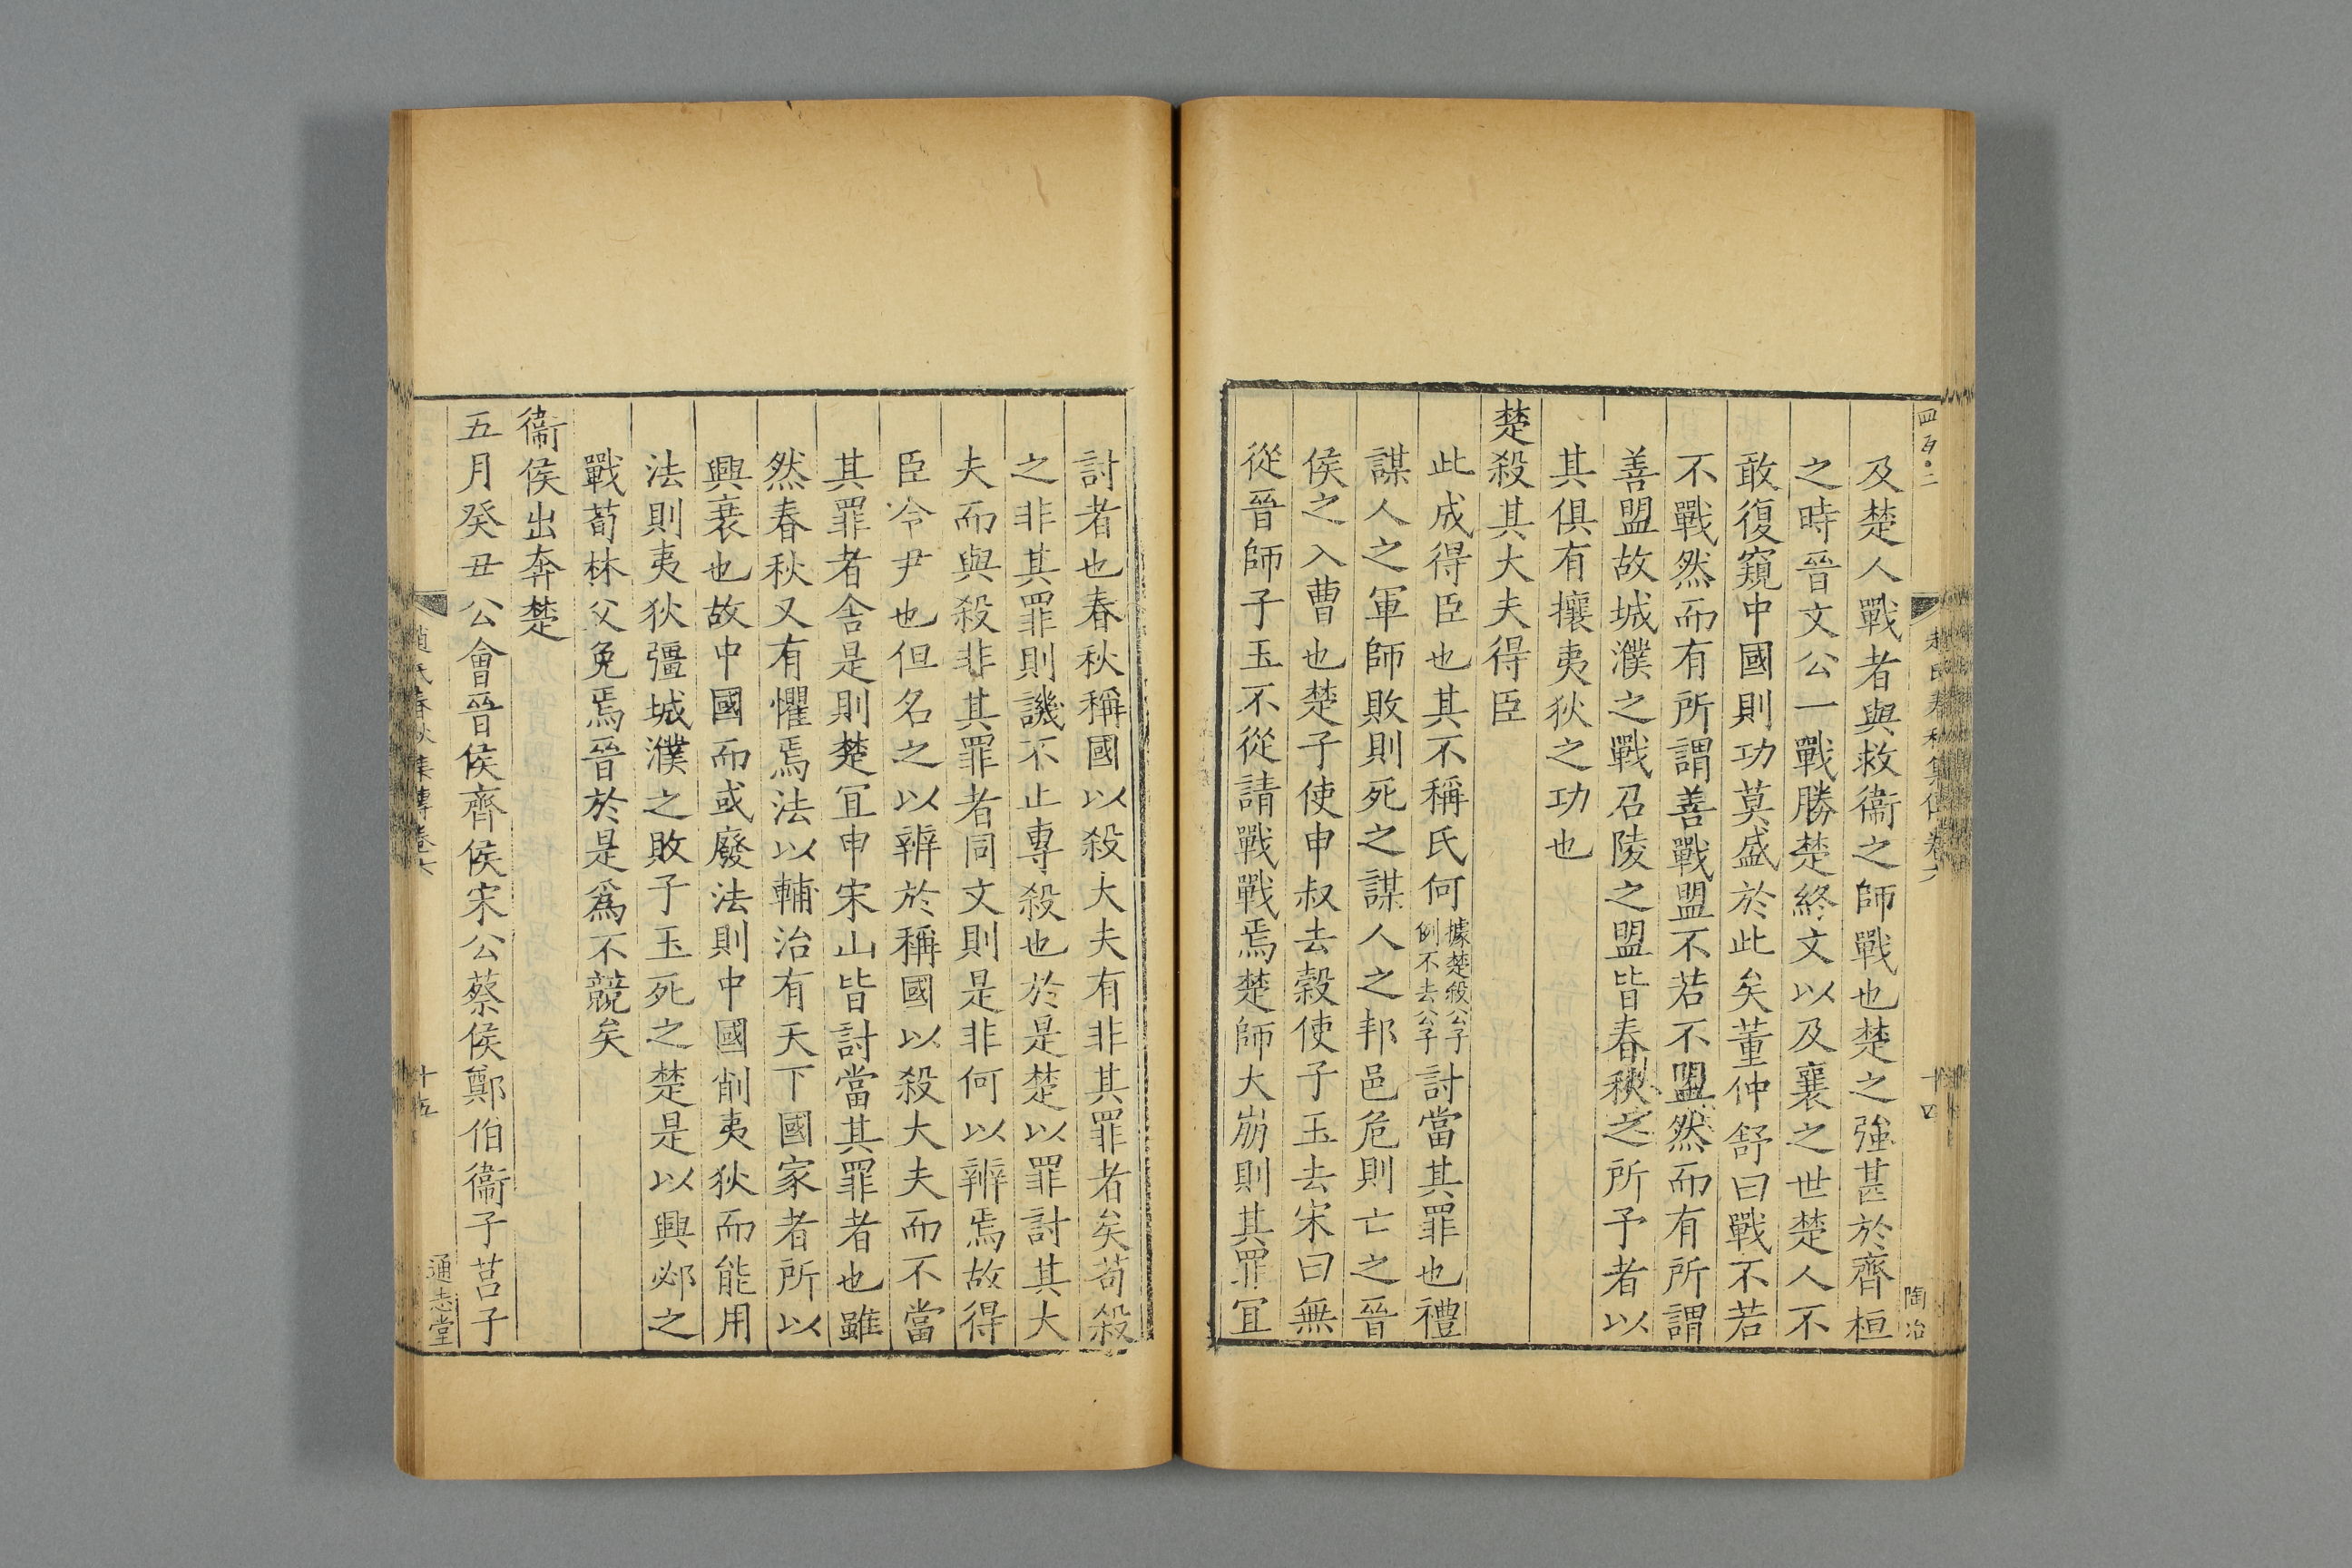 四百二
趙氏春秋集傳卷六
十四
陶冶
及楚人戰者與救衞之師戰也楚之強甚於齊桓
之時晉文公一戰勝楚終文以及襄之世楚人不
敢復窺中國則功莫盛於此矣董仲舒曰戰不若
不戰然而有所謂善戰盟不若不盟然而有所謂
善盟故城濮之戰召陵之盟皆春秋之所予者以
其俱有攘夷狄之功也
楚殺其大夫得臣
此成得臣也其不稱氏何據楚殺公子例不去公子討當其罪也禮
謀人之軍師敗則死之謀人之邦邑危則亡之晉
侯之入曹也楚子使申叔去榖使子玉去宋曰無
從晉師子玉不從請戰戰焉楚師大崩則其罪宜
討者也春秋稱國以殺大夫有非其罪者矣苟殺
之非其罪則譏不止專殺也於是楚以罪討其大
夫而與殺非其罪者同文則是非何以辨焉故得
臣令尹也但名之以辨於稱國以殺大夫而不當
其罪者舍是則楚宜申宋山皆討當其罪者也雖
然春秋又有懼焉法以輔治有天下國家者所以
興衰也故中國而或廢法則中國削夷狄而能用
法則夷狄彊城濮之敗子玉死之楚是以興邲之
戰荀林父免焉晉於是爲不競矣
衞侯出奔楚
五月癸丑公會晉侯齊侯宋公蔡侯鄭伯衞子莒子
趙氏春秋集傳卷六
十五
通志堂